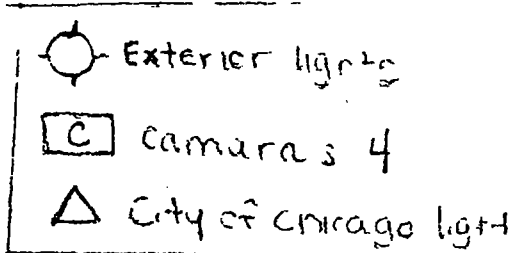 Exterior lights
C camaras 4
City of chicago light